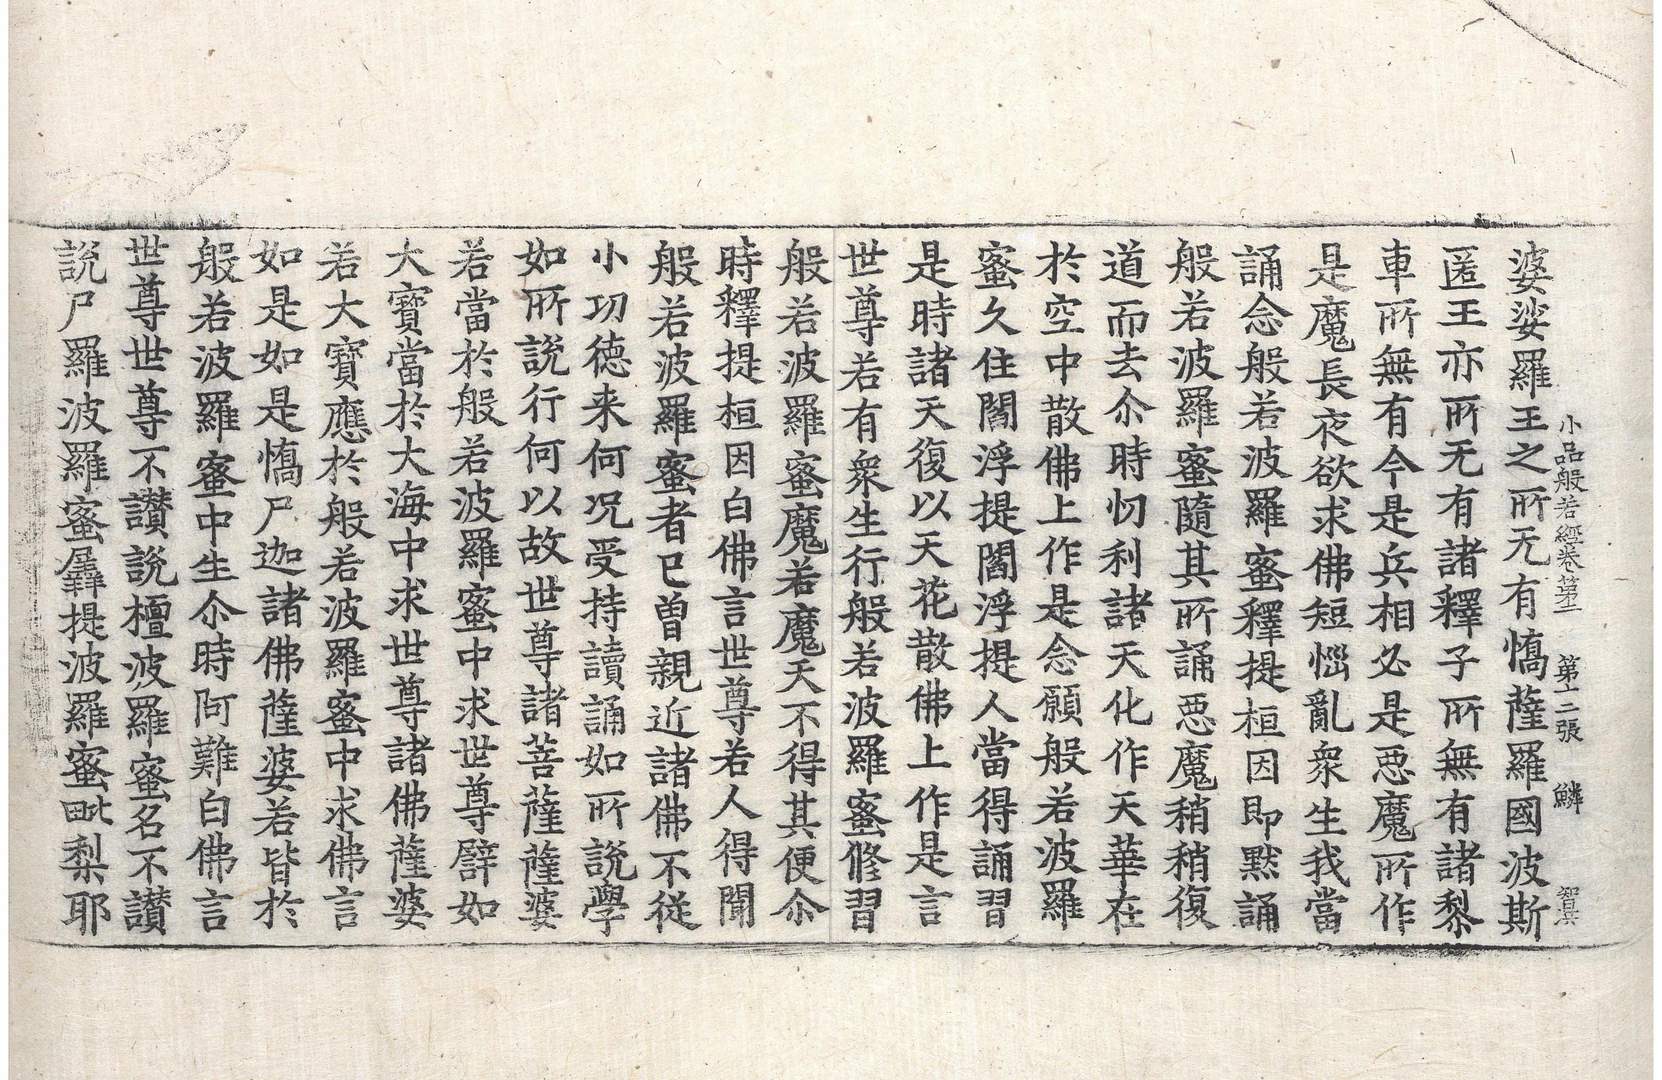 小品般若經卷第二　第十二張　鱗　智共
婆娑羅王之所无有憍薩羅國波斯
匿王亦所无有諸釋子所無有諸梨
車所無有今是兵相必是惡魔所作
是魔長夜欲求佛短惱亂衆生我當
誦念般若波羅蜜釋提桓因即默誦
般若波羅蜜隨其所誦惡魔稍稍復
道而去尒時忉利諸天化作天華在
於空中散佛上作是念願般若波羅
蜜久住閻浮提閻浮提人當得誦習
是時諸天復以天花散佛上作是言
世尊若有衆生行般若波羅蜜修習
般若波羅蜜魔若魔天不得其便尒
時釋提桓因白佛言世尊若人得聞
般若波羅蜜者已曾親近諸佛不從
小功德来何况受持讀誦如所說學
如所說行何以故世尊諸菩薩薩婆
若當於般若波羅蜜中求世尊譬如
大寶當於大海中求世尊諸佛薩婆
若大寶應於般若波羅蜜中求佛言
如是如是憍尸迦諸佛薩婆若皆於
般若波羅蜜中生尒時阿難白佛言
世尊世尊不讃說檀波羅蜜名不讃
說尸羅波羅蜜羼提波羅蜜毗梨耶